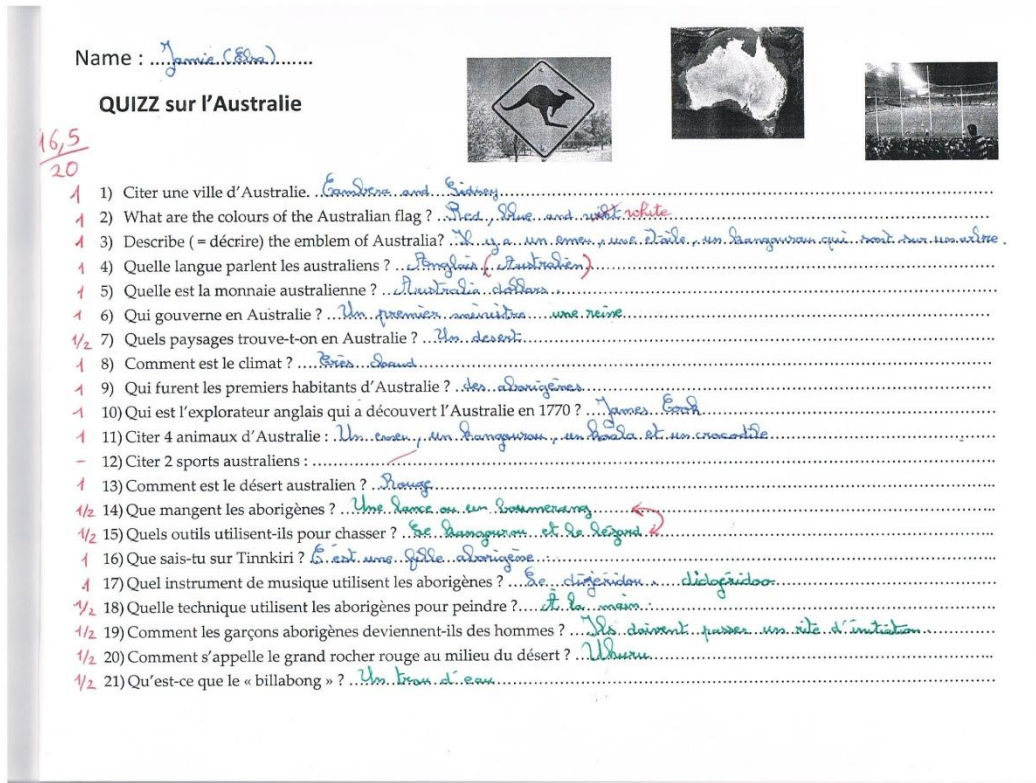 Name : ....Jamie (Elsa).......
QUIZZ sur l'Australie
16,5
20
1 1) Citer une ville d'Australie. Cambera and Sidney
1 2) What are the colours of the Australian flag ? Red, blue and white
1 3) Describe ( = décrire) the emblem of Australia? Il y a un emeu, une étoile, un kangourou qui sont sur un arbre.
1 4) Quelle langue parlent les australiens ? Anglais (Australien)
1 5) Quelle est la monnaie australienne ? Australia dollars.
1 6) Qui gouverne en Australie ? Un premier ministre une reine
1/2 7) Quels paysages trouve-t-on en Australie ? Un desert
1 8) Comment est le climat ? Très chaud
1 9) Qui furent les premiers habitants d'Australie ? des aborigènes
1 10) Qui est l'explorateur anglais qui a découvert l'Australie en 1770 ? James Cook
1 11) Citer 4 animaux d'Australie : Un emeu, un kangourou, un koala et un crocodile
– 12) Citer 2 sports australiens :
1 13) Comment est le désert australien ? Rouge
1/2 14) Que mangent les aborigènes ? Une lance ou un boumerang
1/2 15) Quels outils utilisent-ils pour chasser ? Le kangourou et le lézard
1 16) Que sais-tu sur Tinnkiri ? C'est une fille aborigène.
1 17) Quel instrument de musique utilisent les aborigènes ? Le digeridou. didgeridoo
1/2 18) Quelle technique utilisent les aborigènes pour peindre ? À la main.
1/2 19) Comment les garçons aborigènes deviennent-ils des hommes ? Ils doivent passer un rite d'initiation
1/2 20) Comment s'appelle le grand rocher rouge au milieu du désert ? Uluru
1/2 21) Qu'est-ce que le « billabong » ? Un trou d'eau